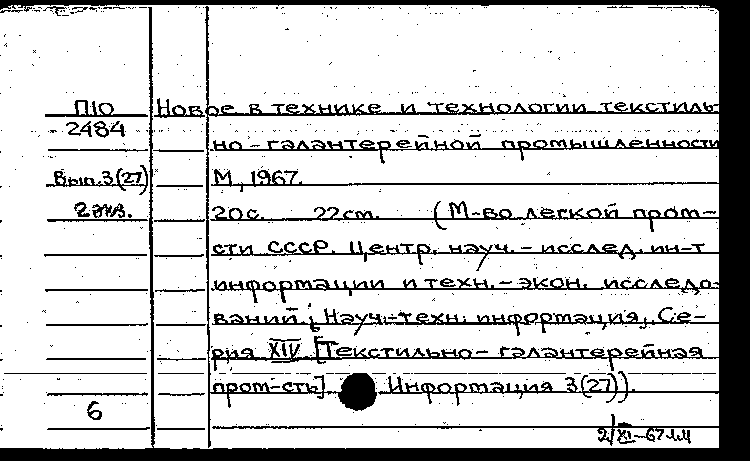 П10 Новое в технике и технологии текстиль-
2484
но-галантерейной промышленности
Вып.3(27) М., 1967.
2 экз. 20 с. 22 cm. (М-во легкой пром-
сти СССР. Центр. науч.-исслед. ин-т
информации и техн.-экон. исследо-
ваний. Науч.-техн. информация. Се-
рия XIV. [Текстильно-галантерейная
пром-сть] Информация 3(27)).
6
2/XI-67